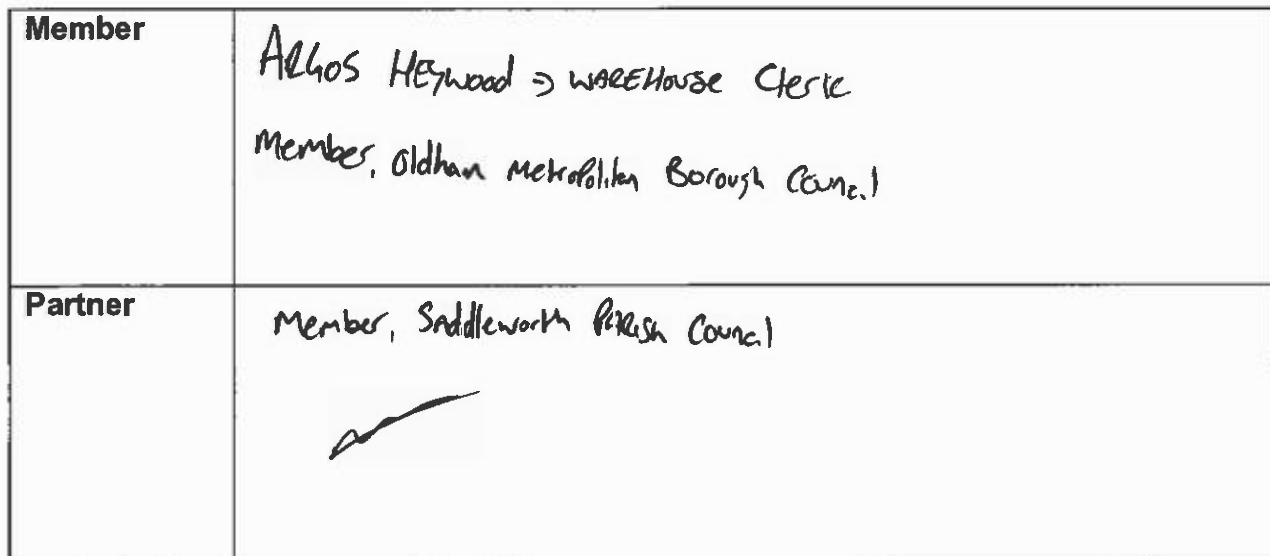 Member
ARGOS HEYwood → WAREHOUSE Clerk
Member, Oldham Metropolitan Borough Council
Partner
Member, Saddleworth PARish Council